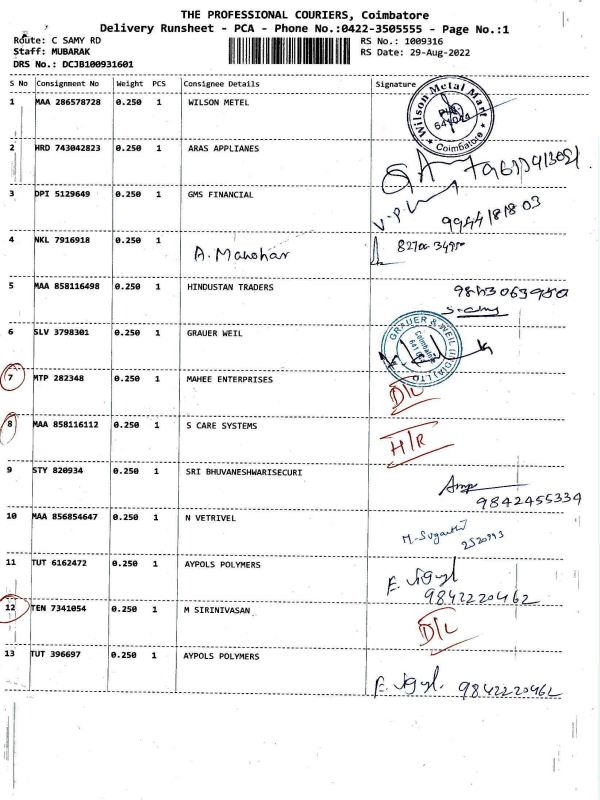 THE PROFESSIONAL COURIERS, Coimbatore
Delivery Runsheet - PCA - Phone No.:0422-3505555 - Page No.:1
Route: C SAMY RD RS No.: 1009316
Staff: MUBARAK RS Date: 29-Aug-2022
DRS No.: DCJB100931601
S No Consignment No Weight PCS Consignee Details Signature
1 MAA 286578728 0.250 1 WILSON METEL
Wilson Metal Mart
Coimbatore
2 HRD 743042823 0.250 1 ARAS APPLIANES
3 DPI 5129649 0.250 1 GMS FINANCIAL
V.P.
9944181803
4 NKL 7916918 0.250 1
A. Manohar
5 MAA 858116498 0.250 1 HINDUSTAN TRADERS
6 SLV 3798301 0.250 1 GRAUER WEIL
GRAUER & WEIL (INDIA) LTD
Coimbatore
7 MTP 282348 0.250 1 MAHEE ENTERPRISES
D/L
8 MAA 858116112 0.250 1 S CARE SYSTEMS
H/R
9 STY 820934 0.250 1 SRI BHUVANESHWARISECURI
9842455334
10 MAA 856854647 0.250 1 N VETRIVEL
11 TUT 6162472 0.250 1 AYPOLS POLYMERS
9842220462
12 TEN 7341054 0.250 1 M SIRINIVASAN
D/L
13 TUT 396697 0.250 1 AYPOLS POLYMERS
9842220462